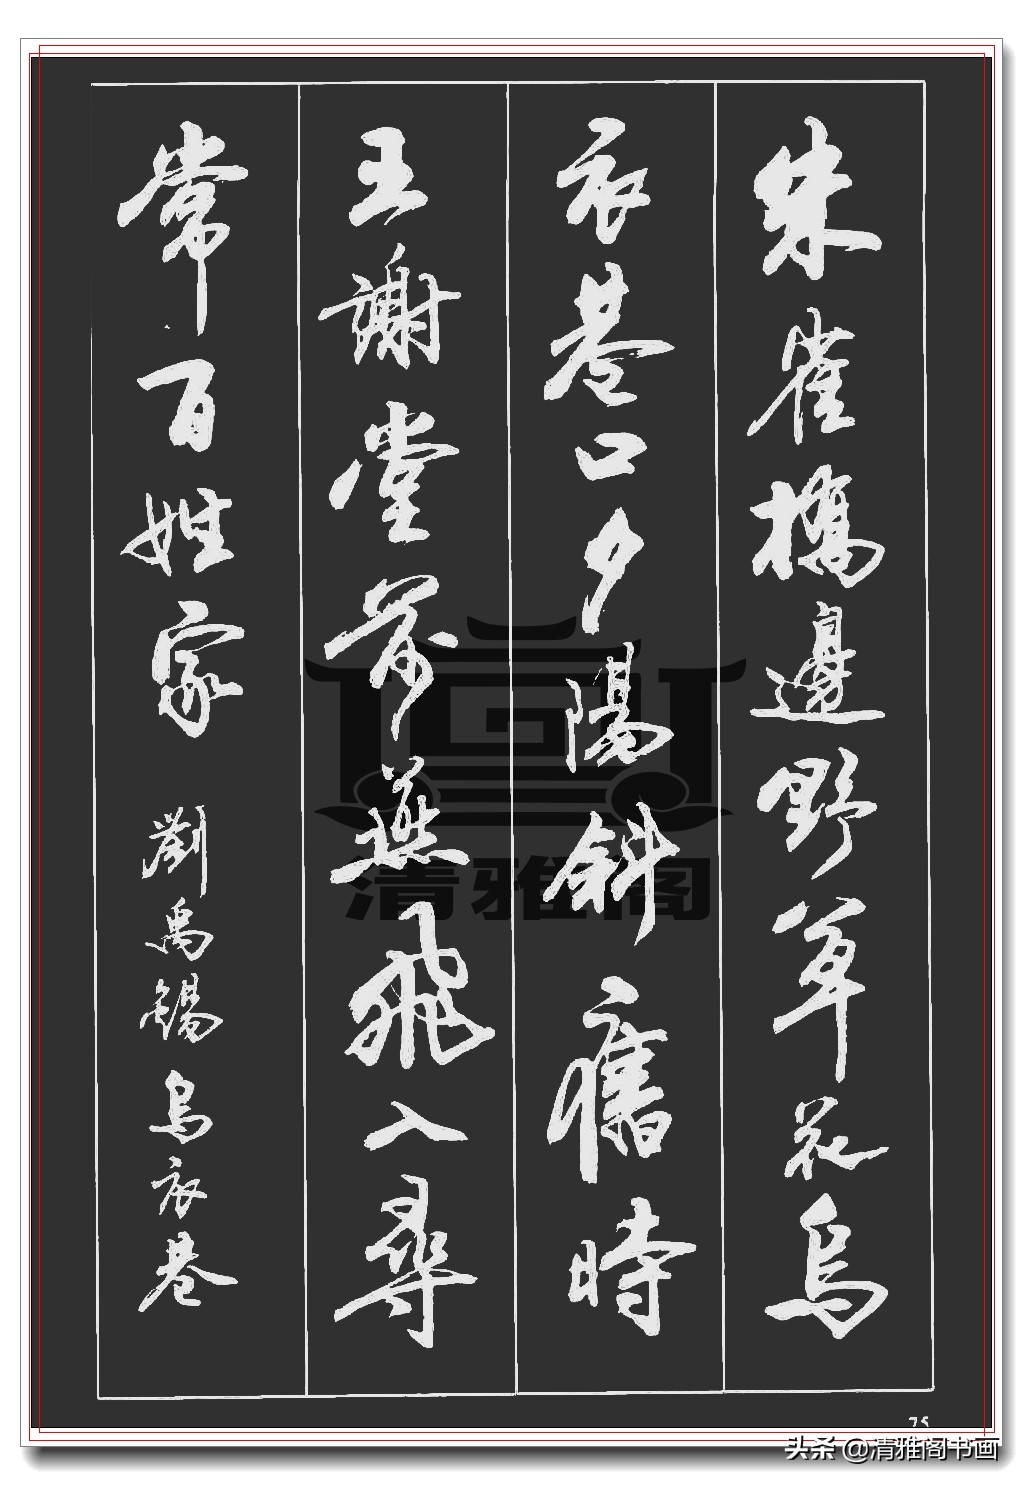 朱雀橋邊野草花烏
衣巷口夕陽斜舊時
王謝堂前燕飛入尋
常百姓家 劉禹錫烏衣巷
清雅阁
75
头条 @清雅阁书画